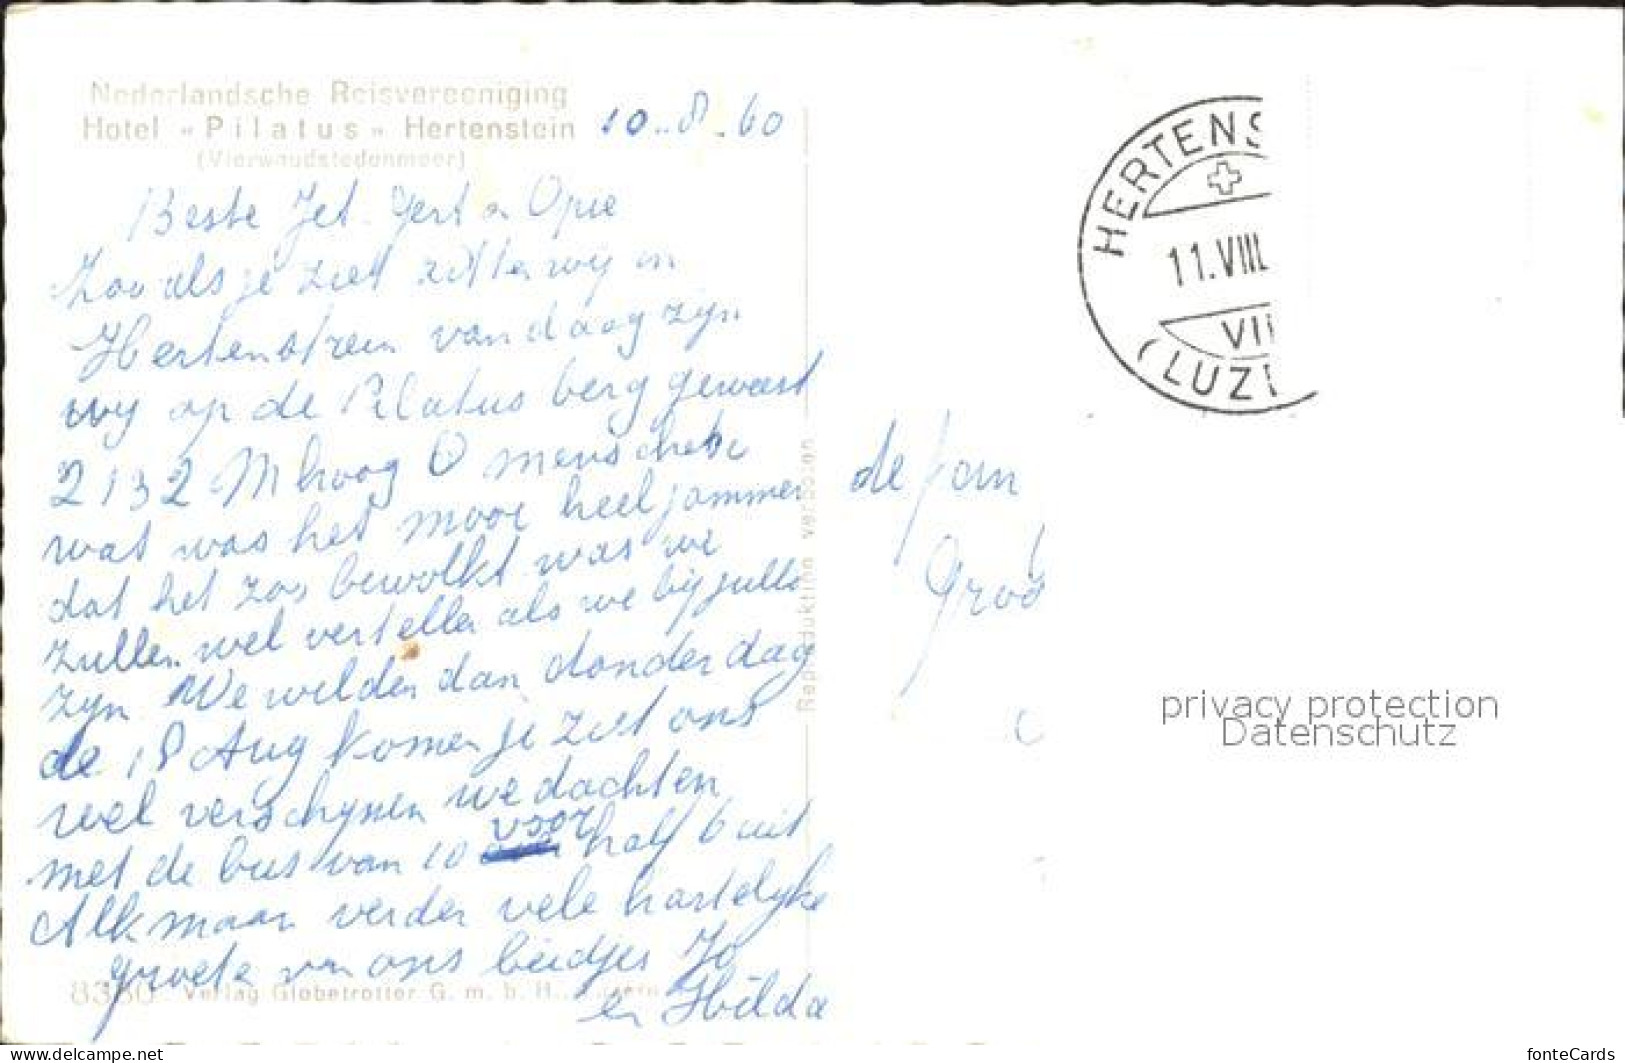 Nederlandsche Reisvereeniging
Hotel «Pilatus» Hertenstein
(Vierwaudstedenmeer)
10.8.60
Beste Jet. Gert en Opie
Zoo als je ziet zitten wy in
Hertenstein vandaag zyn
wy op de Pilatus berg geweest
2132 M hoog O menschen
wat was het mooi heel jammer
dat het zoo bewolkt was we
zullen wel vertellen als we by julle
zyn We wilden dan donderdag
de 18 Aug komen je ziet ons
wel verschynen we dachten
met de bus van 10 voor half 6 uit
Alkmaar verder vele hartelyke
groete van ons beidjes Jo
en Hilda
8380 Verlag Globetrotter G. m. b. H., Luzern
Reproduktion verboten
HERTENS
11.VIII
VII
(LUZE
de fam
Groo
privacy protection
Datenschutz
www.delcampe.net
fonteCards